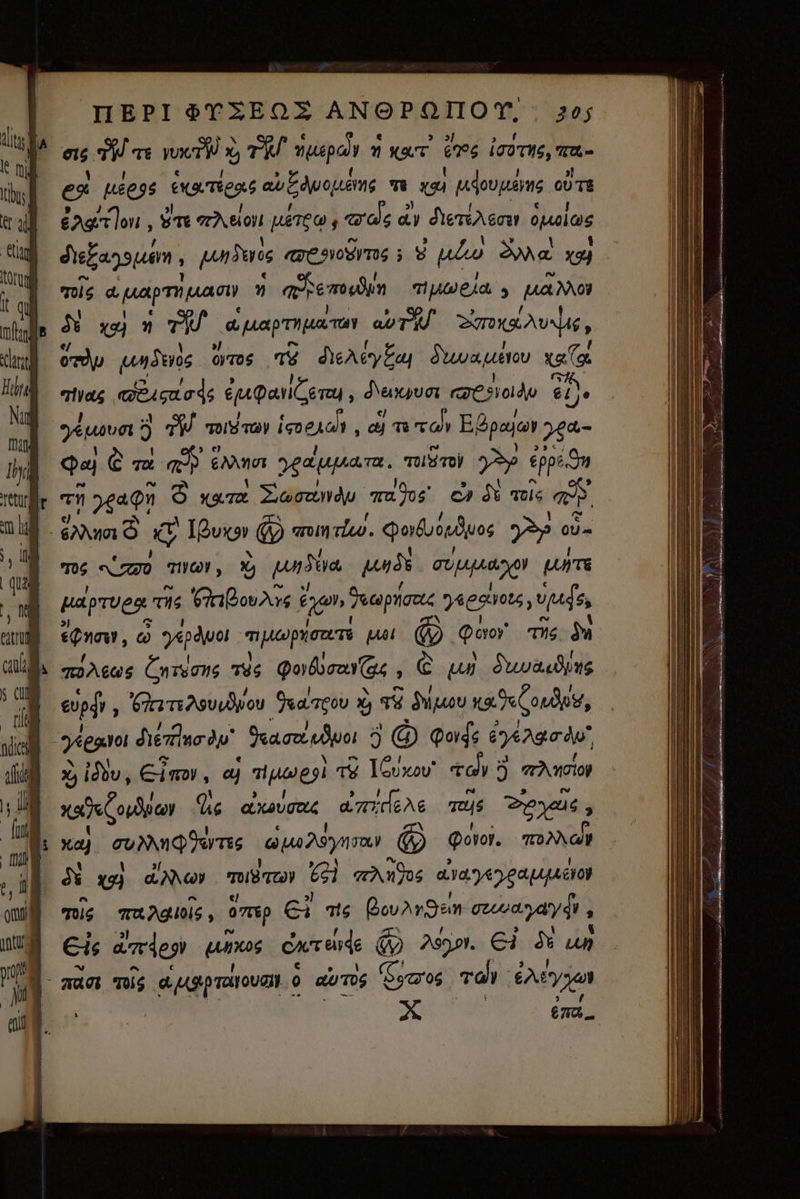 ΠΕΡΙ ΦΥΣΕΩΣ ΑΝΘΡΩΠΟΥ. 305
σις τῶν τε νυκτῶν καὶ τῶν ἡμερῶν ἡ κατ' ἔτος ἰσότης, πα-
ρὰ μέρος ἑκατέρας αὐξανομένης τε καὶ μειουμένης οὔτε
ἐλάττονι, οὔτε πλείονι μέτρῳ, πῶς ἂν διετέλεσεν ὁμοίως
διεξαγομένη, μηδενὸς προνοοῦντος; οὐ μὴν ἀλλὰ καὶ
τοῖς ἁμαρτήμασιν ἡ πρεπομένη τιμωρία, μᾶλλον
δὲ καὶ ἡ τῶν ἁμαρτημάτων αὐτῶν ἀποκάλυψις,
ὅταν μηδενὸς ὄντος τοῦ διελέγξαι δυναμένου κατά
τινας περιστάσεις ἐμφανίζεται, δείκνυσι πρόνοιαν εἶναι.
γέμουσι δὲ τῶν τοιούτων ἱστοριῶν, αἵ τε τῶν Ἑβραίων γρα-
φαὶ καὶ τὰ παρ' ἕλλησι γράμματα. τοιοῦτον γὰρ ἐρρέθη
τῇ γραφῇ τὸ κατὰ Σωσάνναν πάθος· ἐν δὲ τοῖς παρ'
ἕλλησι τὸ κατ' Ἴβυκον τὸν ποιητήν. φονευόμενος γὰρ οὗ-
τος ὑπό τινων, καὶ μηδένα μηδὲ σύμμαχον μήτε
μάρτυρα τῆς ἐπιβουλῆς ἔχων, θεωρήσας γεράνους, ὑμεῖς,
ἔφησεν, ὦ γέρανοι τιμωρήσατέ μοι τὸν φόνον· τῆς δὲ
πόλεως ζητούσης τοὺς φονεύσαντας, καὶ μὴ δυναμένης
εὑρεῖν, ἐπιτελουμένου θεάτρου καὶ τοῦ δήμου καθεζομένου,
γέρανοι διέπτησαν· θεασάμενοι δὲ οἱ φονεῖς ἐγέλασαν,
καὶ ἰδού, εἶπον, αἱ τιμωροὶ τοῦ Ἰβύκου· τῶν δὲ πλησίον
καθεζομένων τὶς ἀκούσας ἀπήγγειλε ταῖς ἀρχαῖς,
καὶ συλληφθέντες ὡμολόγησαν τὸν φόνον. πολλῶν
δὲ καὶ ἄλλων τοιούτων ἐστὶ πλῆθος ἀναγεγραμμένον
τοῖς παλαιοῖς, ὅπερ εἴ τις βουληθείη συναγαγεῖν,
εἰς ἄπειρον μῆκος ἐκτενεῖ τὸν λόγον. εἰ δὲ μὴ
πᾶσι τοῖς ἁμαρτάνουσιν ὁ αὐτὸς τρόπος τῶν ἐλέγχων
X ἐπά-